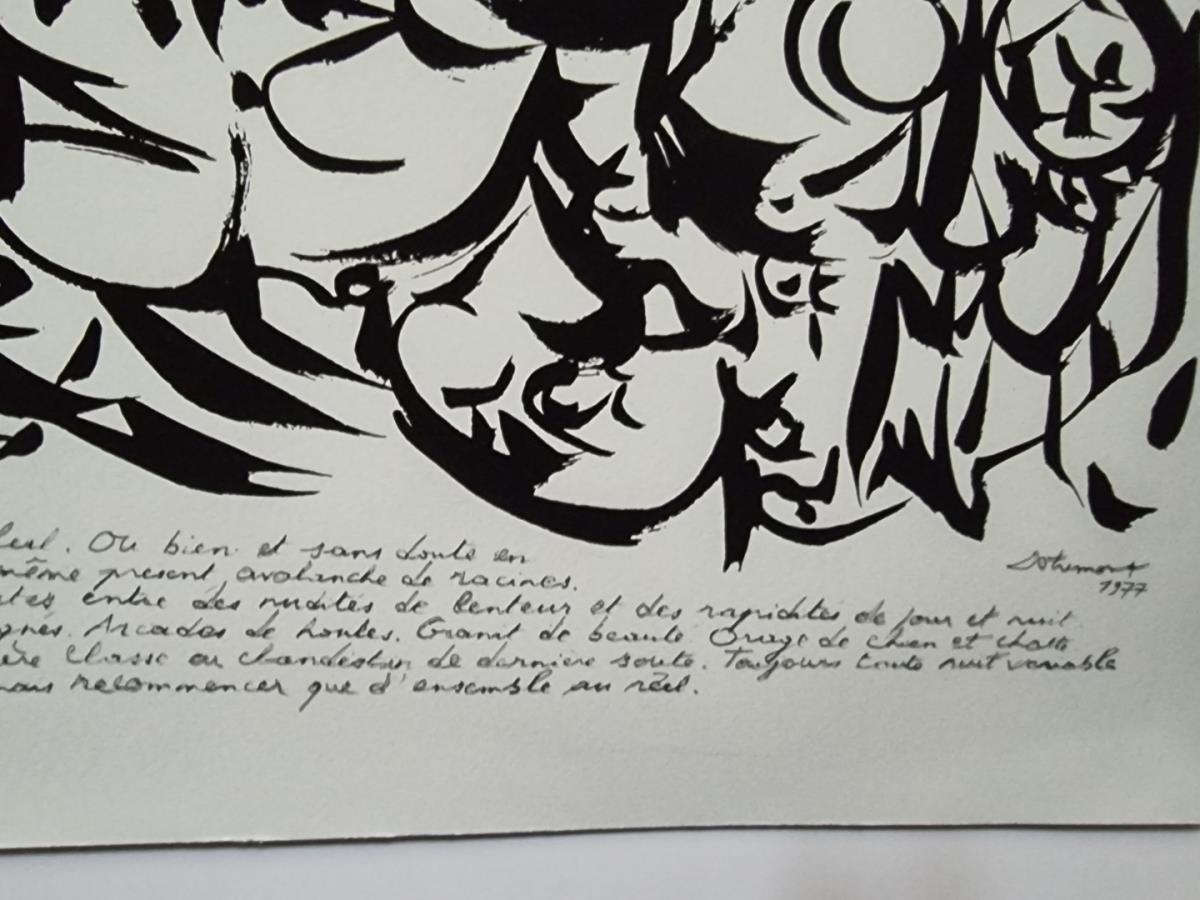 seul. Ou bien et sans doute en
même présent, avalanche de racines.
entre des nudités de lenteur et des rapidités de jour et nuit
gnés. Arcades de hontes. Granit de beauté. Orage de chien et chatte
ère classe ou clandestin de dernière soute. Toujours toute nuit variable
mais recommencer que d'ensemble au réel.
Dotremont
1977